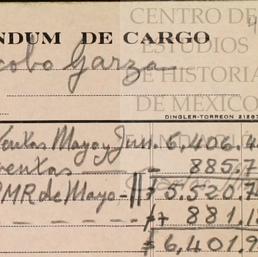 CENTRO DE
ESTUDIOS
DE HISTORIA
DE MÉXICO
NDUM DE CARGO
cobo Garza
DINGLER-TORREON
Ventas Mayo y Jun. 6,406.4
ventas 885.7
PMR de Mayo 5.520.7
881.1
6,401.9